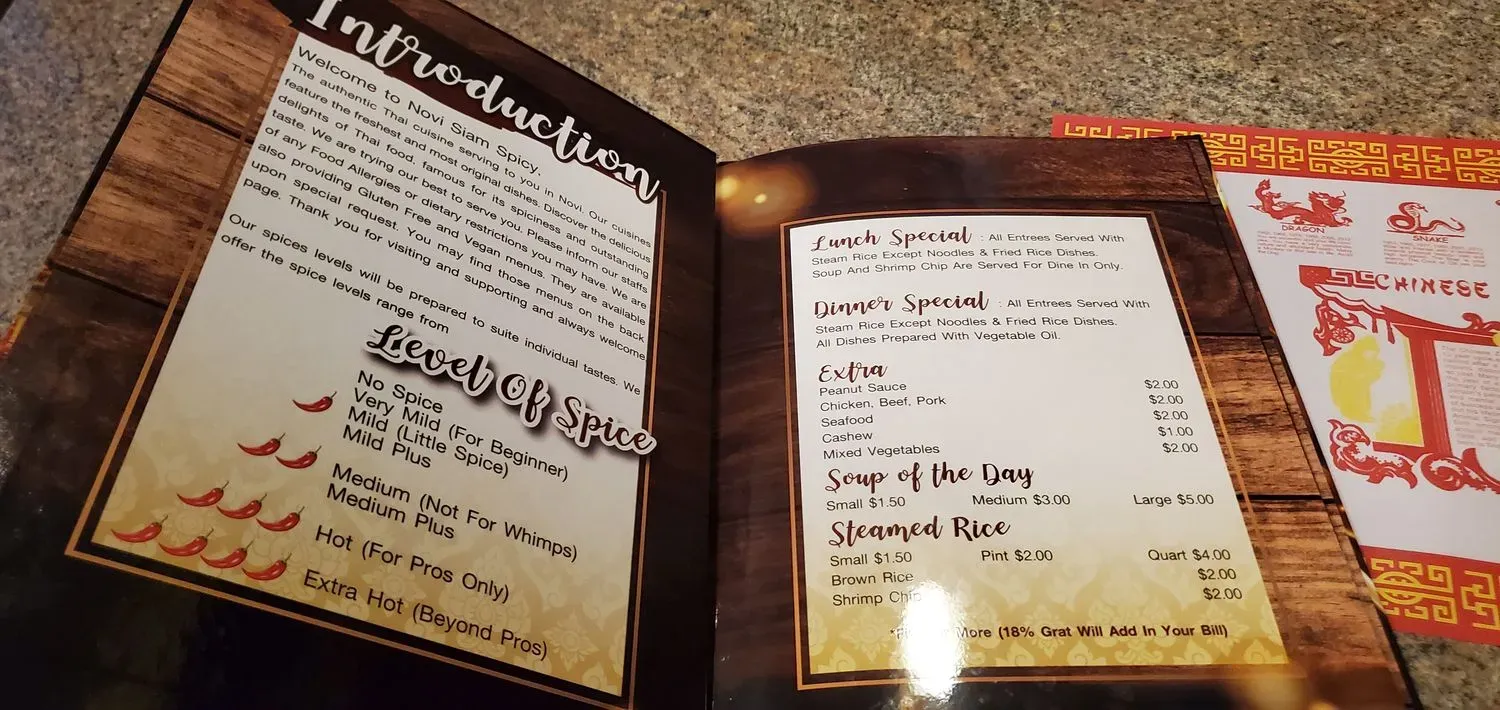 Introduction
Welcome to Novi Siam Spicy.
The authentic Thai cuisine serving to you in Novi. Our cuisines
feature the freshest and most original dishes. Discover the delicious
delights of Thai food, famous for its spiciness and outstanding
taste. We are trying our best to serve you. Please inform our staffs
of any Food Allergies or dietary restrictions you may have. We are
also providing Gluten Free and Vegan menus. They are available
upon special request. You may find those menus on the back
page. Thank you for visiting and supporting and always welcome
Our spices levels will be prepared to suite individual tastes. We
offer the spice levels range from
Level Of Spice
No Spice
Very Mild (For Beginner)
Mild (Little Spice)
Mild Plus
Medium (Not For Whimps)
Medium Plus
Hot (For Pros Only)
Extra Hot (Beyond Pros)
Lunch Special : All Entrees Served With
Steam Rice Except Noodles & Fried Rice Dishes.
Soup And Shrimp Chip Are Served For Dine In Only.
Dinner Special : All Entrees Served With
Steam Rice Except Noodles & Fried Rice Dishes.
All Dishes Prepared With Vegetable Oil.
Extra
Peanut Sauce $2.00
Chicken, Beef, Pork $2.00
Seafood $2.00
Cashew $1.00
Mixed Vegetables $2.00
Soup of the Day
Small $1.50 Medium $3.00 Large $5.00
Steamed Rice
Small $1.50 Pint $2.00 Quart $4.00
Brown Rice $2.00
Shrimp Chip $2.00
More (18% Grat Will Add In Your Bill)
DRAGON
SNAKE
CHINESE